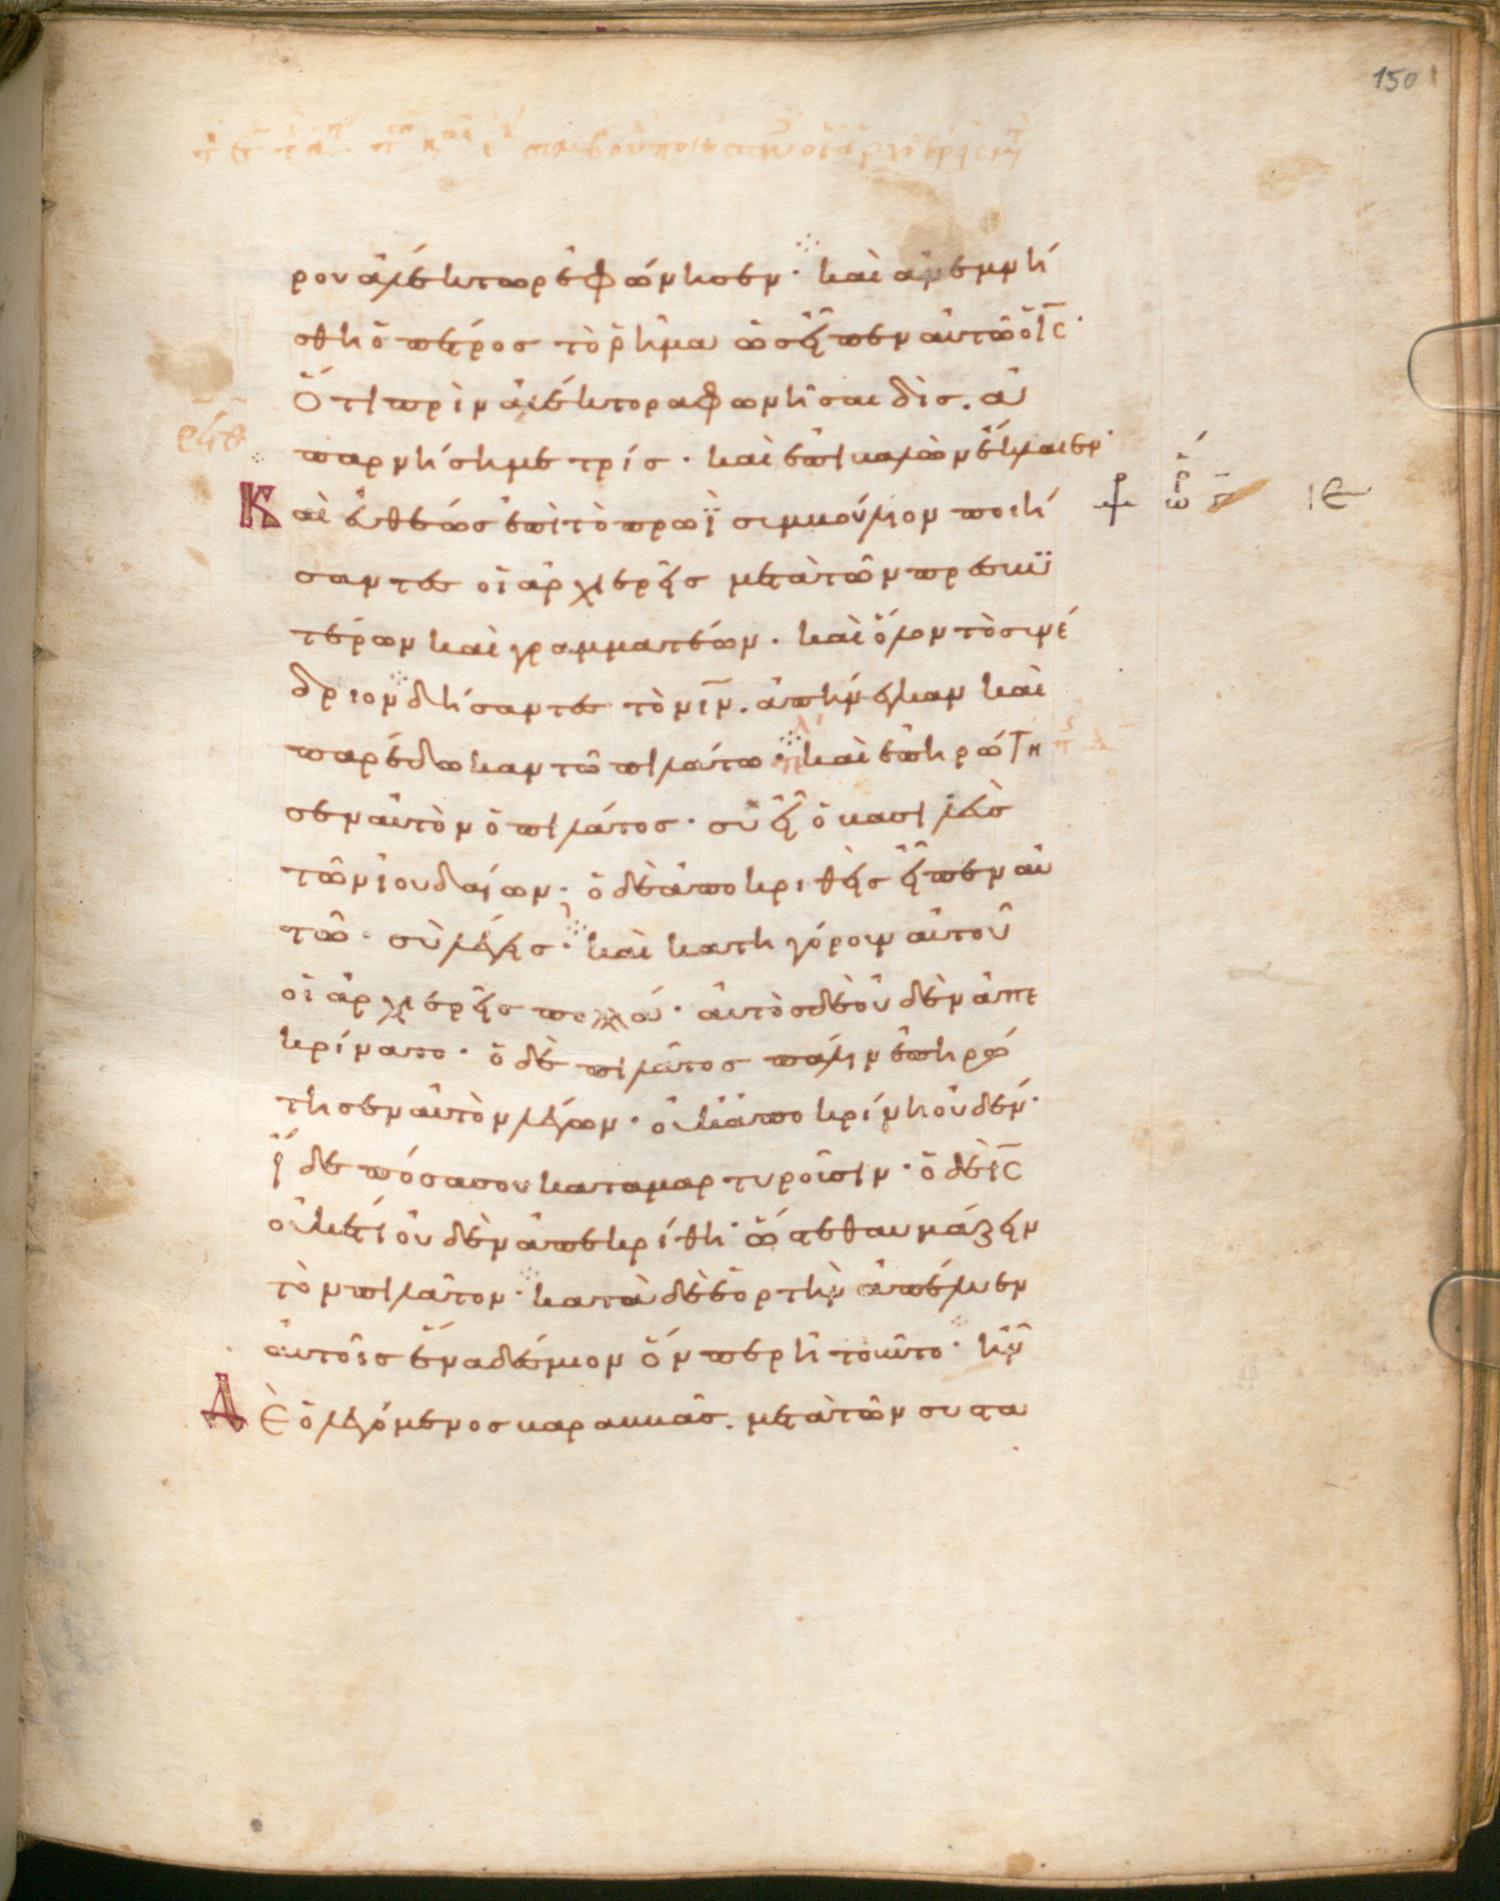 150
ρου ἀλέκτωρ ἐφώνησεν· καὶ ἀνεμνή
σθη ὁ πέτρος τὸ ῥῆμα ὃ εἶπεν αὐτῶ ὁ ι̅ς̅·
Ὅτι πρὶν ἀλέκτορα φωνῆσαι δὶς. ἀ
παρνήση με τρίς· καὶ ἐπιβαλὼν ἔκλαιεν·
Καὶ εὐθέως ἐπὶ τὸ πρωῒ συμβούλιον ποιή
σαντες οἱ ἀρχιερεῖς μετὰ τῶν πρεσβϋ
τέρων καὶ γραμματέων· καὶ ὅλον τὸ συνέ
δριον δήσαντες τὸν ι̅ν̅. ἀπήνεγκαν καὶ
παρέδωκαν τῶ πιλάτω· καὶ ἐπηρώτη
σεν αὐτὸν ὁ πιλάτος· σὺ εἶ ὁ βασιλεὺς
τῶν ἰουδαίων· ὁ δὲ ἀποκριθεὶς εἶπεν αὐ
τῶ· σὺ λέγεις· καὶ κατηγόρουν αὐτοῦ
οἱ ἀρχιερεῖς πολλά· αὐτὸς δὲ οὐδὲν ἀπε
κρίνατο· ὁ δὲ πιλᾶτος πάλιν ἐπηρώ
τησεν αὐτὸν λέγων· οὐκ ἀποκρίνη οὐδέν·
ἴδε πόσα σου καταμαρτυροῦσιν· ὁ δὲ ι̅ς̅
οὐκέτι οὐδὲν ἀπεκρίθη· ὥστε θαυμάζειν
τὸν πιλᾶτον· κατὰ δὲ ἑορτὴν ἀπέλυεν
αὐτοῖς ἕνα δέσμιον ὅνπερ ἠτοῦντο· ἦν
Δὲ ὁ λεγόμενος βαραββᾶς. μετὰ τῶν συστα